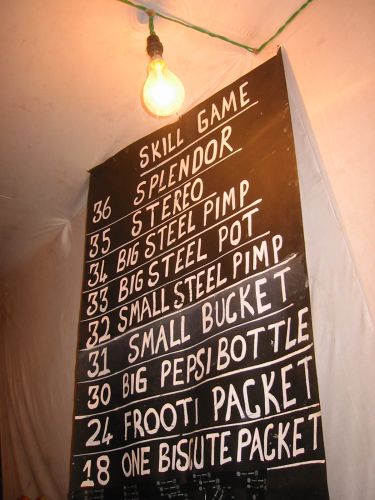 SKILL GAME
36 SPLENDOR
35 STEREO
34 BIG STEEL PIMP
33 BIG STEEL POT
32 SMALL STEEL PIMP
31 SMALL BUCKET
30 BIG PEPSI BOTTLE
24 FROOTI PACKET
18 ONE BISCUTE PACKET